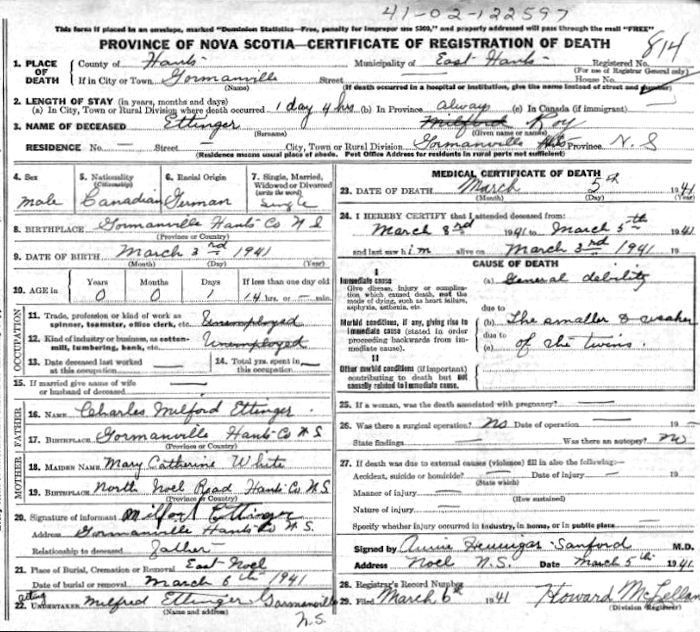 41-02-122597
This form if placed in an envelope, marked "Dominion Statistics—Free, penalty for improper use $300," and properly addressed will pass through the mail "FREE"
PROVINCE OF NOVA SCOTIA—CERTIFICATE OF REGISTRATION OF DEATH
814
1. PLACE OF DEATH County of Hants Municipality of East Hants Registered No.
(For use of Registrar General only)
If in City or Town Gormanville Street House No.
(Name) (If death occurred in a hospital or institution, give the name instead of street and number)
2. LENGTH OF STAY (in years, months and days)
(a) In City, Town or Rural Division where death occurred 1 day 4 hrs (b) In Province always (c) In Canada (if immigrant)
3. NAME OF DECEASED Ettinger Milford Roy
(Surname) (Given name or names)
RESIDENCE No. — Street — City, Town or Rural Division Gormanville Province N.S
(Residence means usual place of abode. Post Office Address for residents in rural parts not sufficient)
4. Sex 5. Nationality (Citizenship) 6. Racial Origin 7. Single, Married, Widowed or Divorced (write the word)
male Canadian German Single
8. BIRTHPLACE Gormanville Hants Co N S
(Province or Country)
9. DATE OF BIRTH March 3rd 1941
(Month) (Day) (Year)
10. AGE in Years Months Days If less than one day old
0 0 1 14 hrs. or — min.
OCCUPATION
11. Trade, profession or kind of work as spinner, teamster, office clerk, etc. Unemployed
12. Kind of industry or business, as cotton-mill, lumbering, bank, etc. Unemployed
13. Date deceased last worked at this occupation — 14. Total yrs. spent in this occupation —
15. If married give name of wife or husband of deceased —
FATHER
16. NAME Charles Milford Ettinger
17. BIRTHPLACE Gormanville Hants Co N S
MOTHER
18. MAIDEN NAME Mary Catherine White
19. BIRTHPLACE North Noel Road Hants Co N.S
(Province or Country)
20. Signature of informant Milford Ettinger
Address Gormanville Hants Co N.S.
Relationship to deceased Father
21. Place of Burial, Cremation or Removal East Noel
Date of burial or removal March 6th 1941
acting
22. UNDERTAKER Milfred Ettinger Gormanville
(Name and address) N.S.
MEDICAL CERTIFICATE OF DEATH
23. DATE OF DEATH March 5th 1941
(Month) (Day)
24. I HEREBY CERTIFY that I attended deceased from:
March 3rd 1941 to March 5th 1941
and last saw him alive on March 3rd 1941 19
CAUSE OF DEATH
I
Immediate cause (a) General debility
Give disease, injury or complication which caused death, not the mode of dying, such as heart failure, asphyxia, asthenia, etc.
due to
Morbid conditions, if any, giving rise to immediate cause (stated in order proceeding backwards from immediate cause). (b) The smaller & weaker
due to
(c) of the twins.
II
Other morbid conditions (if important) contributing to death but not causally related to immediate cause.
25. If a woman, was the death associated with pregnancy? —
26. Was there a surgical operation? No Date of operation —
State findings — Was there an autopsy? No
27. If death was due to external causes (violence) fill in also the following:—
Accident, suicide or homicide? — Date of injury — 19
(State which)
Manner of injury —
(How sustained)
Nature of injury —
Specify whether injury occurred in industry, in home, or in public place —
Signed by Annie Hennigar-Sanford M.D.
Address Noel N.S. Date March 5th 1941
28. Registrar's Record Number
29. Filed March 6th 1941 Howard McLellan
(Division Registrar)